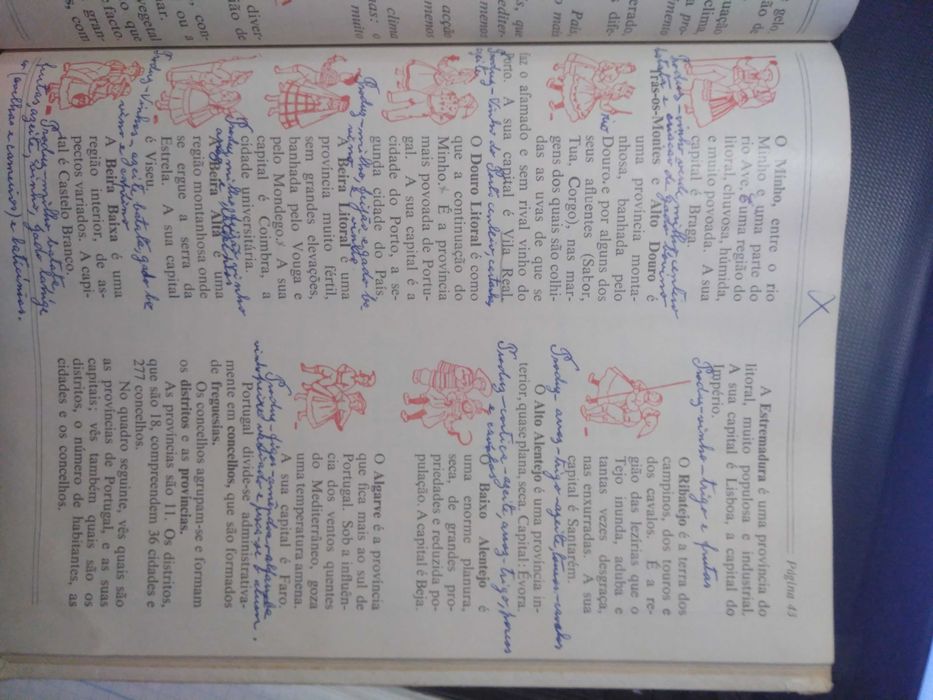 Página 43
O Minho, entre o rio
Minho e uma parte do
rio Ave, é uma região do
litoral, chuvosa, húmida,
e muito povoada. A sua
capital é Braga.
Produz-vinho verde, milho, centeio
batata e criação de gado bovino
Trás-os-Montes e Alto Douro é
uma província monta-
nhosa, banhada pelo
rio Douro e por alguns dos
seus afluentes (Sabor,
Tua, Corgo), nas mar-
gens dos quais são colhi-
das as uvas de que se
faz o afamado e sem rival vinho do
Porto. A sua capital é Vila Real.
Produz-vinho do Porto
azeite
O Douro Litoral é como
que a continuação do
Minho. É a província
mais povoada de Portu-
gal. A sua capital é a
cidade do Porto, a se-
gunda cidade do País.
Produz-milho, feijão e gado bo
vino
A Beira Litoral é uma
província muito fértil,
sem grandes elevações,
banhada pelo Vouga e
pelo Mondego. A sua
capital é Coimbra, a
cidade universitária.
Produz milho, vinho
A Beira Alta é uma
região montanhosa onde
se ergue a serra da
Estrela. A sua capital
é Viseu.
Produz-vinho, azeite, batata, gado bo
vino e
A Beira Baixa é uma
região interior, de as-
pectos variados. A capi-
tal é Castelo Branco.
Produz-milho,
frutas, azeite, vinho, gado
(ovelhas e carneiros) e
A Estremadura é uma província do
litoral, muito populosa e industrial.
A sua capital é Lisboa, a capital do
Império.
Produz-vinho-trigo e frutas
O Ribatejo é a terra dos
campinos, dos touros e
dos cavalos. É a re-
gião das lezírias que o
Tejo inunda, aduba e
tantas vezes desgraça,
nas enxurradas. A sua
capital é Santarém.
Produz-arroz-trigo-azeite, touros-cavalos
O Alto Alentejo é uma província in-
terior, quase plana, seca. Capital: Évora.
Produz-cortiça-azeite, arroz, trigo, porcos
O Baixo Alentejo é
uma enorme planura,
seca, de grandes pro-
priedades e reduzida po-
pulação. A capital é Beja.
O Algarve é a província
que fica mais ao sul de
Portugal. Sob a influên-
cia dos ventos quentes
do Mediterrâneo, goza
uma temperatura amena.
A sua capital é Faro.
Produz-figos-amêndoa-alfarroba
Portugal divide-se administrativa-
mente em concelhos, que são formados
de freguesias.
Os concelhos agrupam-se e formam
os distritos e as províncias.
As províncias são 11. Os distritos,
que são 18, compreendem 36 cidades e
277 concelhos.
No quadro seguinte, vês quais são
as províncias de Portugal, e as suas
capitais; vês também quais são os
distritos, o número de habitantes, as
cidades e os concelhos.